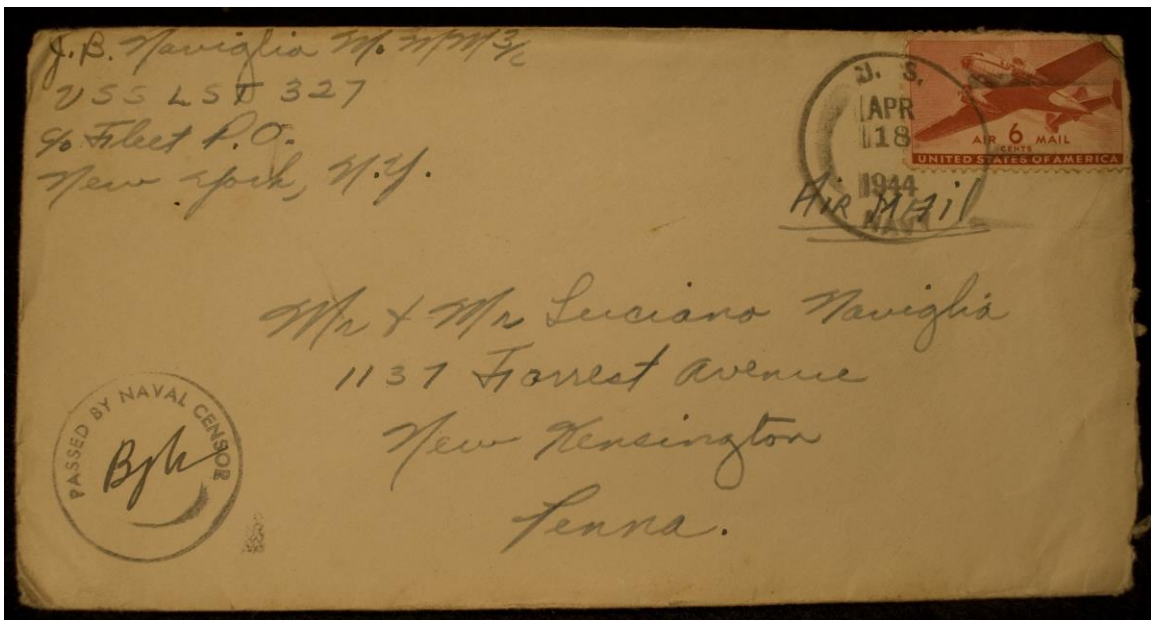 J. B. Naviglia M. MM3/c
USS LST 327
c/o Fleet P.O.
New York, N.Y.
U. S.
APR
18
1944
NAVY
AIR 6 MAIL
CENTS
UNITED STATES OF AMERICA
AIR MAil
Mr & Mr Luciano Naviglia
1137 Forrest Avenue
New Kensington
Penna.
PASSED BY NAVAL CENSOR